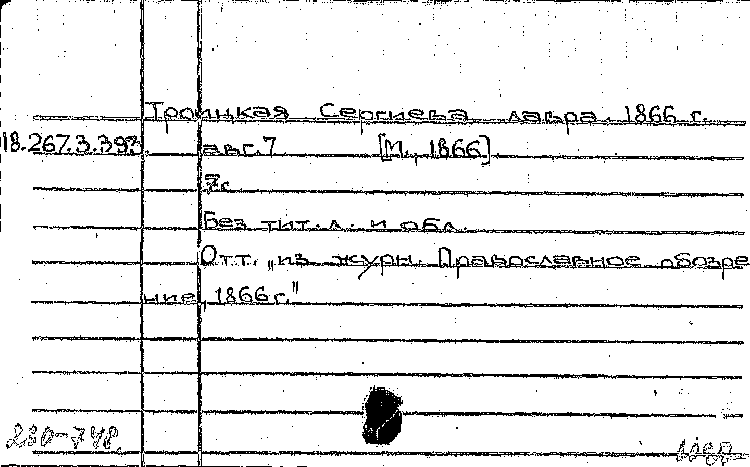 Троицкая Сергиева лавра. 1866 г.
18.267.3.393. авг. 7 [М., 1866].
7с.
Без тит. л. и обл.
Отт. „из журн. Православное обозре
ние, 1866 г."
230-748.